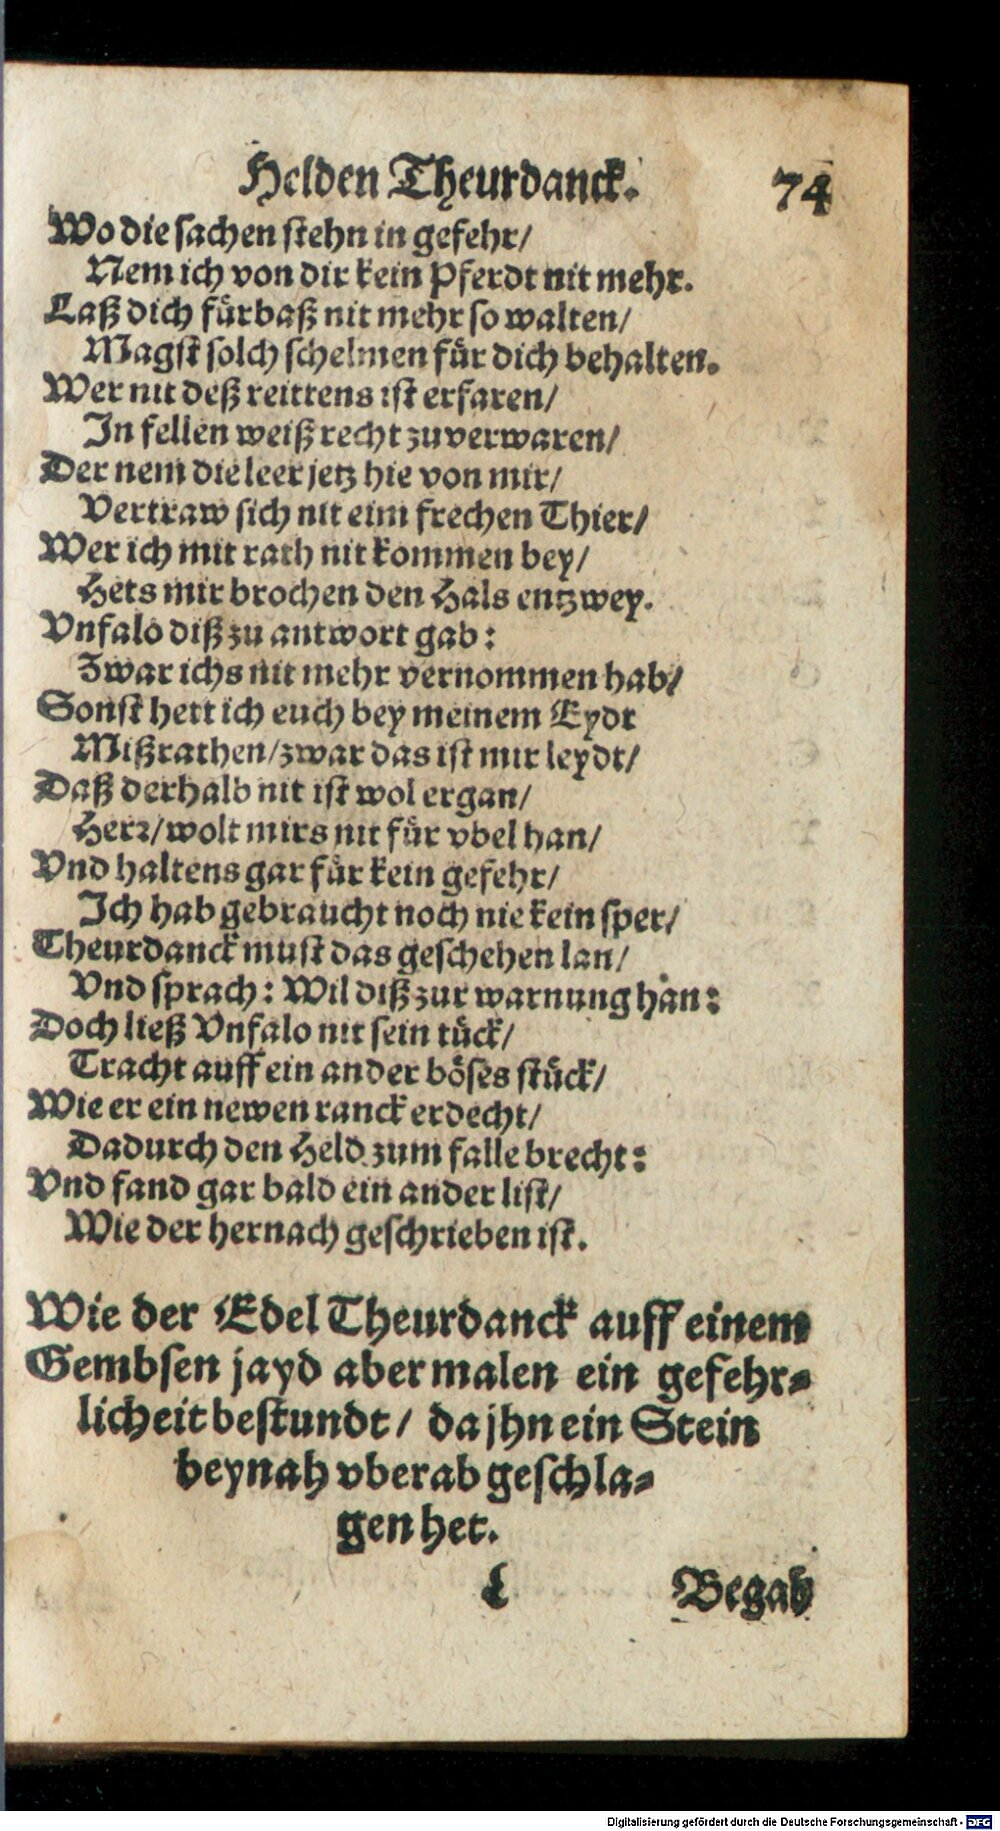 Helden Theurdanck. 74
Wo die sachen stehn in gefehr/
Nem ich von dir kein Pferdt nit mehr.
Laß dich fürbaß nit mehr so walten/
Magst solch schelmen für dich behalten.
Wer nit deß reittens ist erfaren/
In fellen weiß recht zuverwaren/
Der nem die leer jetz hie von mir/
Vertraw sich nit eim frechen Thier/
Wer ich mit rath nit kommen bey/
Hets mir brochen den Hals entzwey.
Vnfalo diß zu antwort gab:
Zwar ichs nit mehr vernommen hab/
Sonst hett ich euch bey meinem Eydt
Mißrathen/zwar das ist mir leydt/
Daß derhalb nit ist wol ergan/
Herr/wolt mirs nit für vbel han/
Vnd haltens gar für kein gefehr/
Ich hab gebraucht noch nie kein sper/
Theurdanck must das geschehen lan/
Vnd sprach: Wil diß zur warnung han:
Doch ließ Vnfalo nit sein tück/
Tracht auff ein ander böses stück/
Wie er ein newen ranck erdecht/
Dadurch den Held zum falle brecht:
Vnd fand gar bald ein ander list/
Wie der hernach geschrieben ist.
Wie der Edel Theurdanck auff einem
Gembsen jayd abermalen ein gefehr-
licheit bestundt/ da jhn ein Stein
beynah vberab geschla-
gen het.
Begab
Digitalisierung gefördert durch die Deutsche Forschungsgemeinschaft - DFG